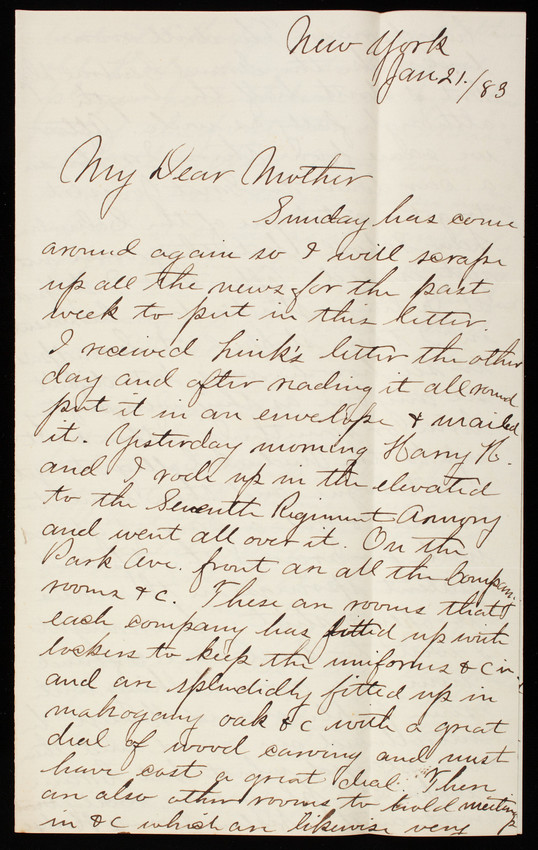 New York
Jan 21./83
My Dear Mother
Sunday has come
around again so I will scrape
up all the news for the past
week to put in this letter.
I received Link's letter the other
day and after reading it all round
put it in an envelope & mailed
it. Yesterday morning Harry K.
and I rode up in the elevated
to the Seventh Regiment Armory
and went all over it. On the
Park Ave. front are all the Company
rooms &c. These are rooms that
each company has fitted up with
lockers to keep the uniforms &c in
and are splendidly fitted up in
mahogany oak &c with a great
deal of wood carving and must
have cost a great deal. There
are also other rooms to hold meetings
in &c which are likewise very